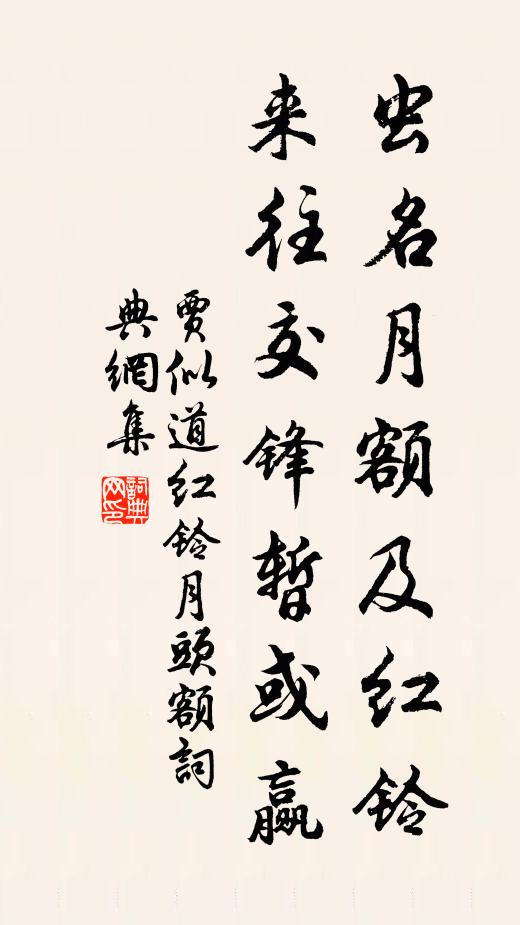 虫名月额及红铃
来往交锋暂或赢
贾似道红铃月頭额詞
典網集
詞典网印